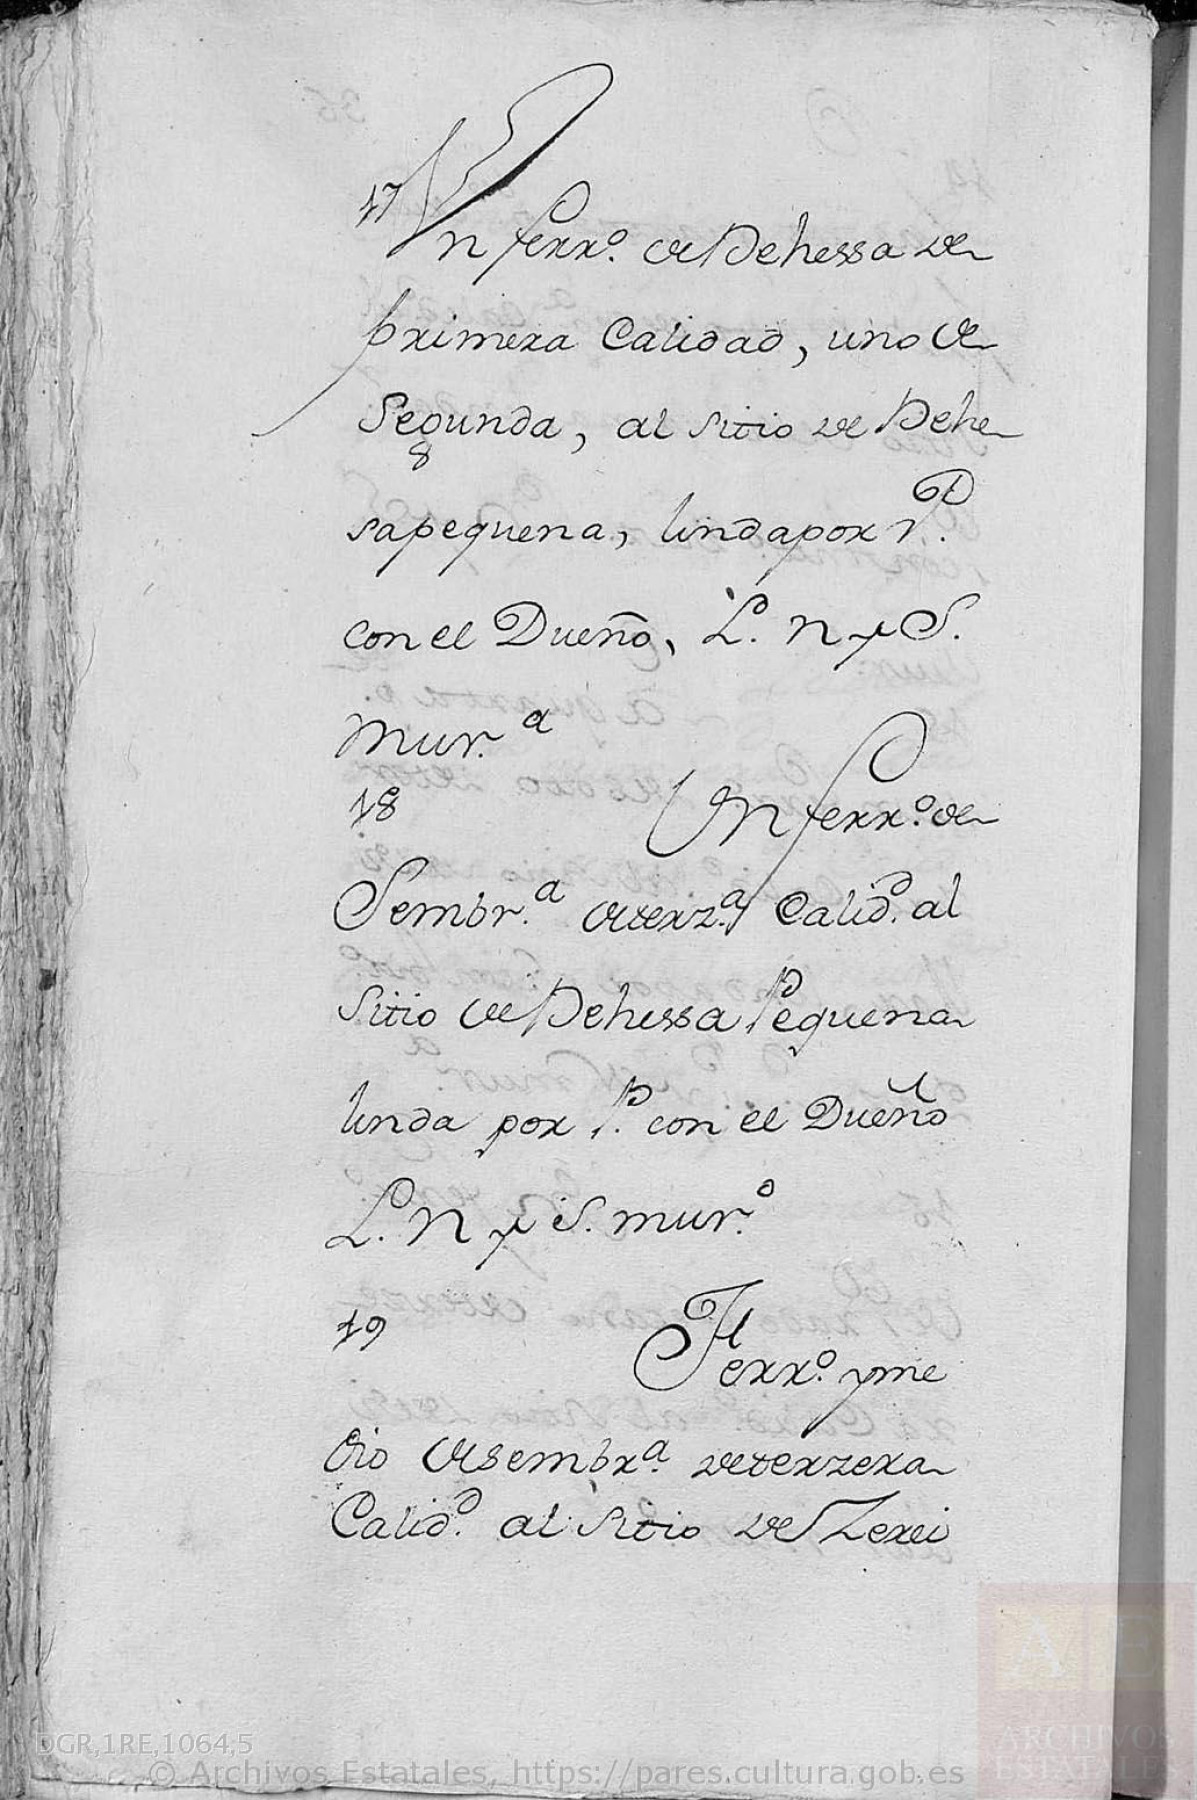 17 Un ferr.º de Dehessa de
primera Calidad, uno de
Segunda, al sitio de Dehe
sapequena, linda por P.
con el Dueño, L. N y S.
mur.ª
18 Un ferr.º de
Sembr.ª de terz.ª Calid.ᵈ al
sitio de Dehessa Pequena
linda por P. con el Dueño
L. N y S. mur.º
19 Ferr.º y me
dio de sembr.ª de terzera
Calid.ᵈ al sitio de
DGR,1RE,1064,5
© Archivos Estatales, https://pares.cultura.gob.es
AE
ARCHIVOS
ESTATALES